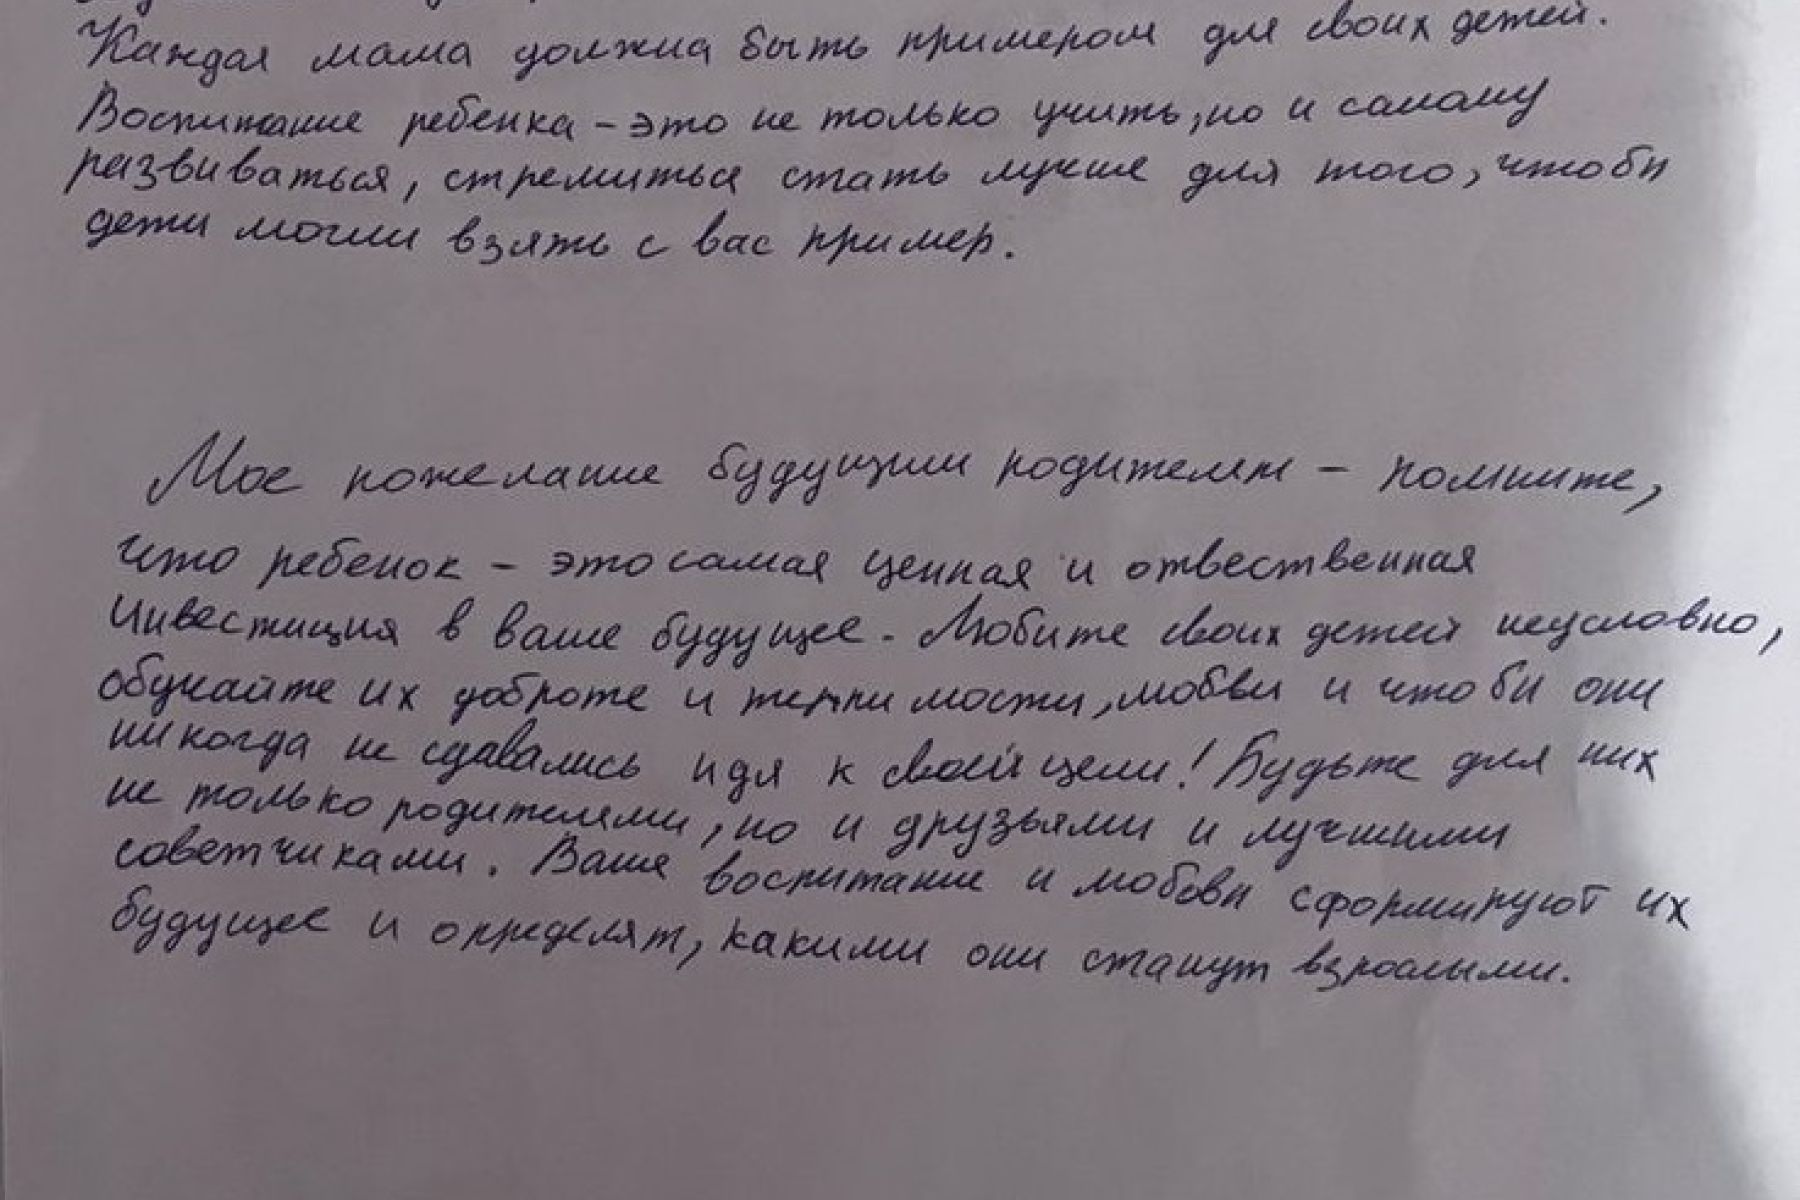 Каждая мама должна быть примером для своих детей.
Воспитание ребенка - это не только учить, но и самому
развиваться, стремиться стать лучше для того, чтобы
дети могли взять с вас пример.
Мое пожелание будущим родителям - помните,
что ребенок - это самая ценная и отвественная
инвестиция в ваше будущее. Любите своих детей неусловно,
обучайте их доброте и терпимости, любви и чтобы они
никогда не сдавались идя к своей цели! Будьте для них
не только родителями, но и друзьями и лучшими
советчиками. Ваше воспитание и любовь сформируют их
будущее и определят, какими они станут взрослыми.